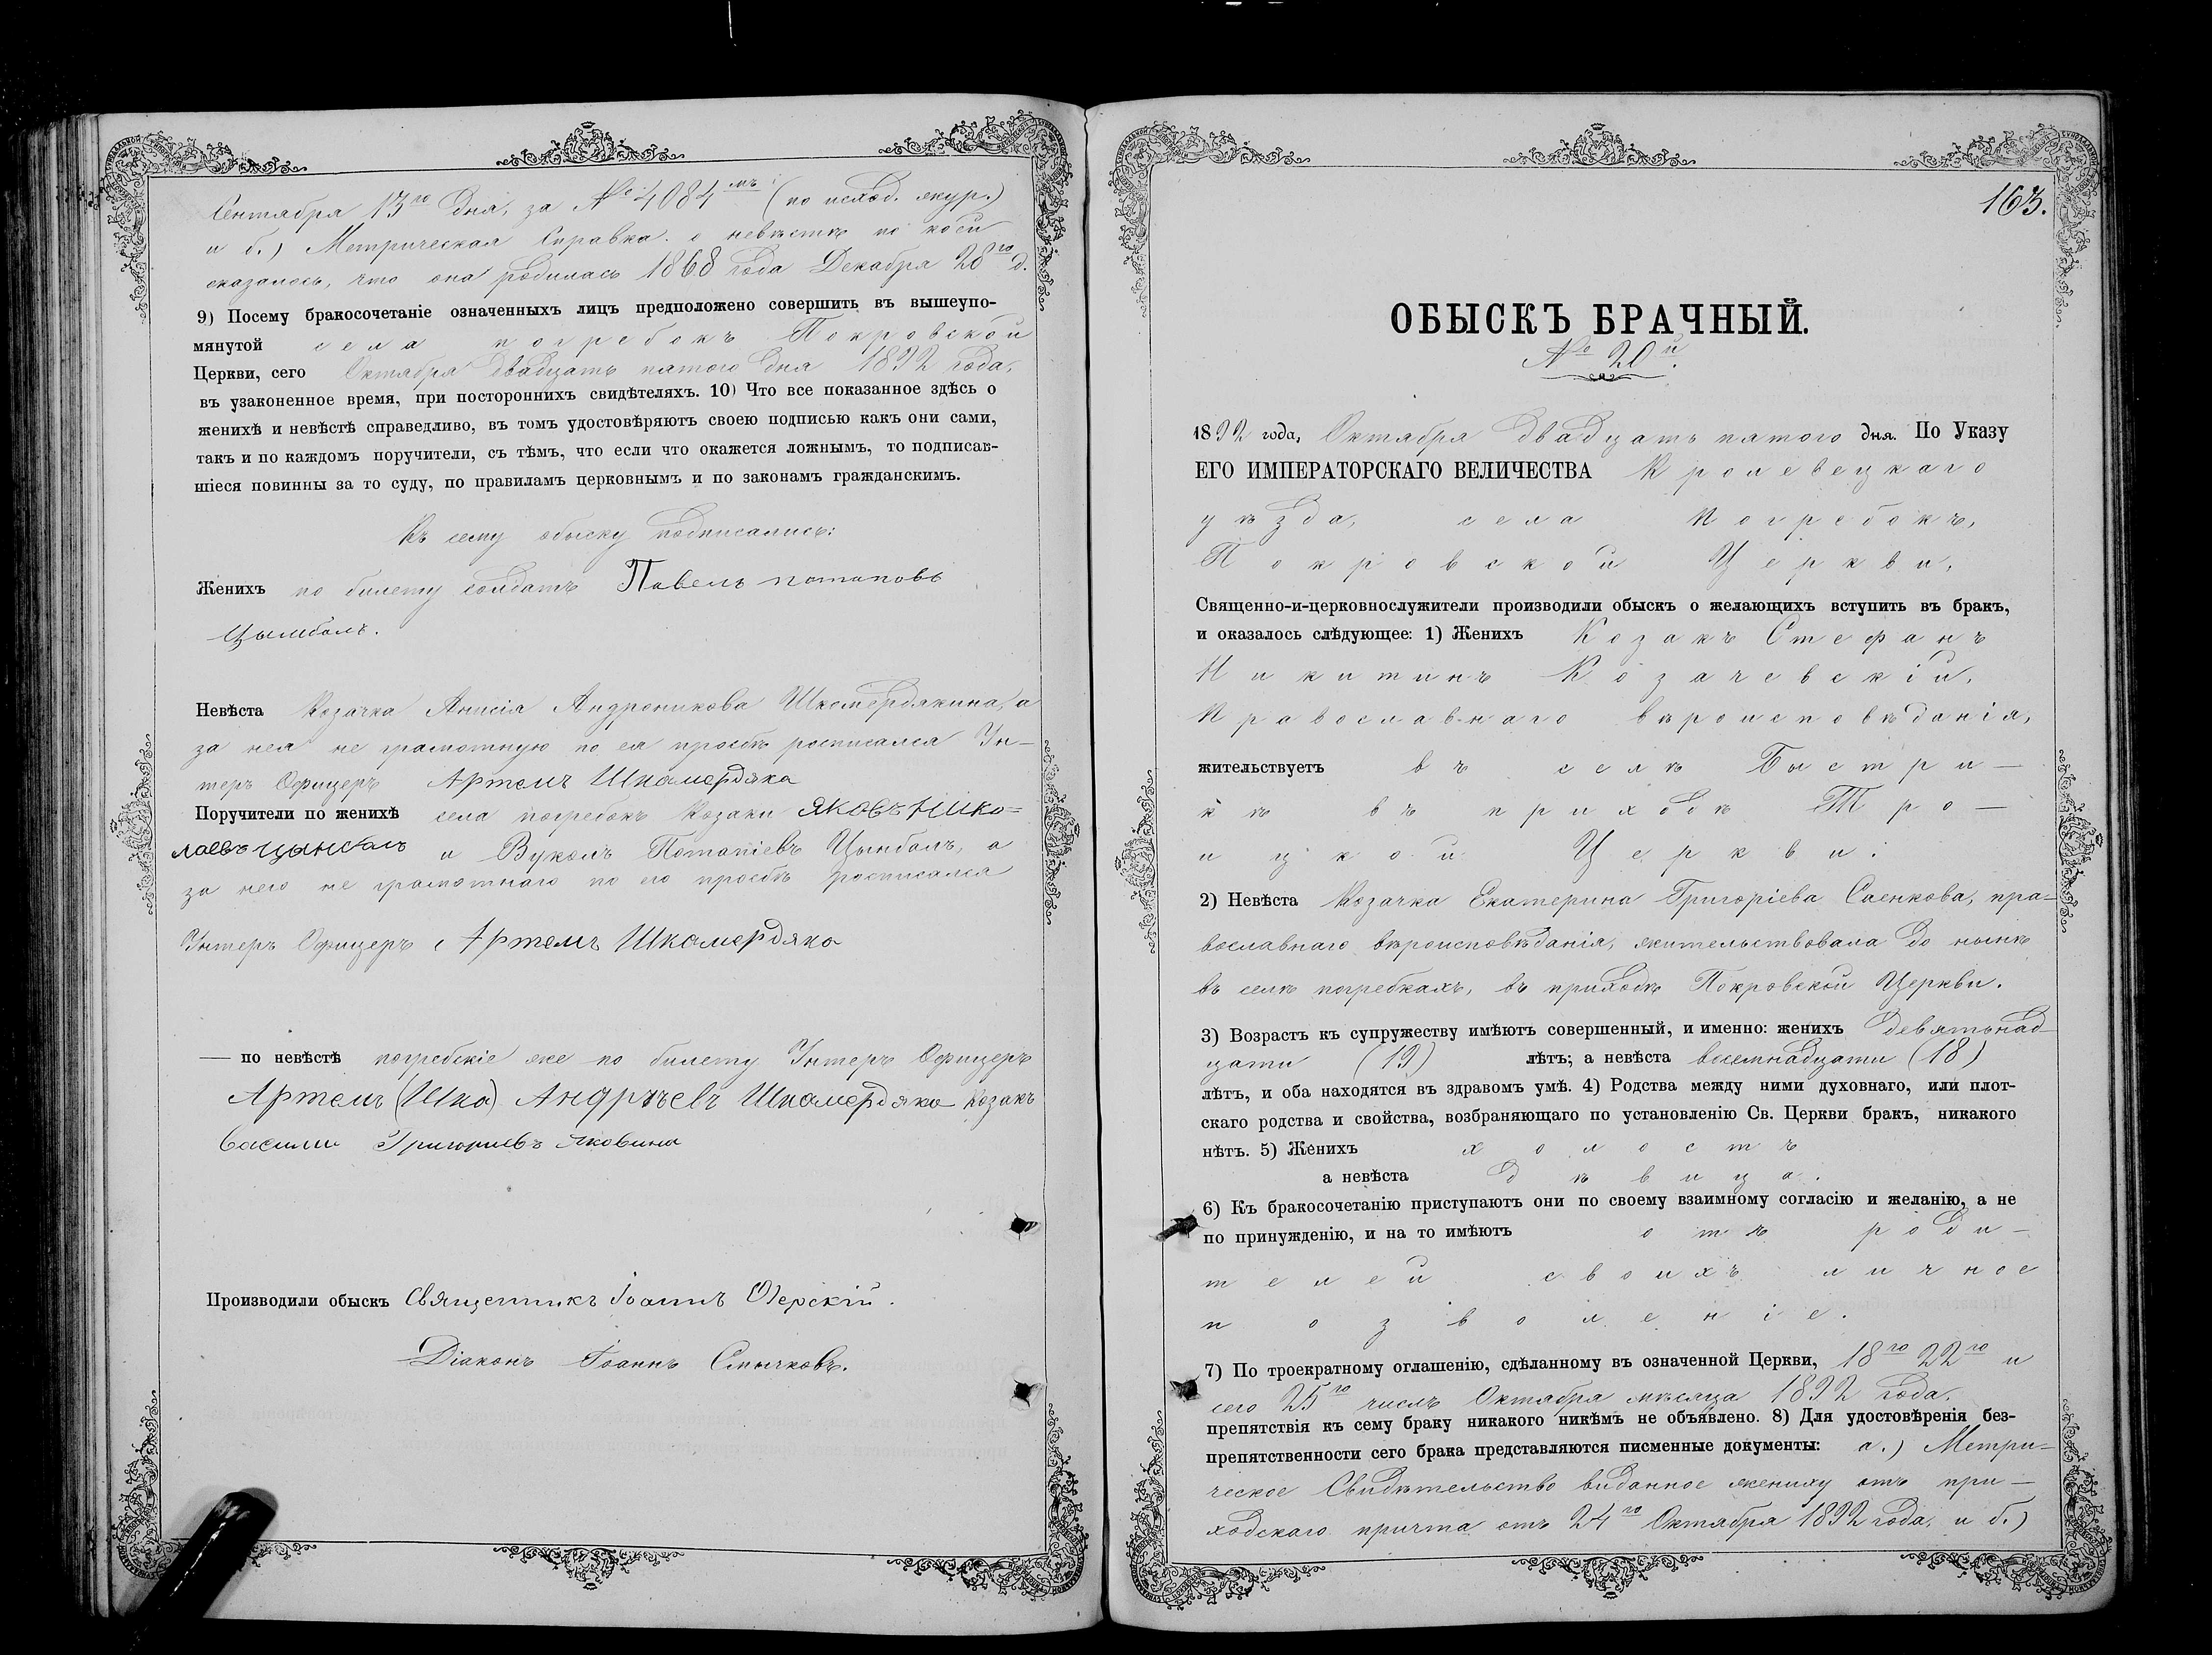 Сентября 13го дня, за № 4084мъ (по исход. жур.)
и б.) Метрическая Справка о невѣстѣ по коей
оказалось, что она родилась 1868 года Декабря 28го д.
9) Посему бракосочетаніе означенныхъ лицъ предположено совершить въ вышеупо-
мянутой села погребокъ Покровской
Церкви, сего Октября двадцать пятого дня 1892 года,
въ узаконенное время, при постороннихъ свидѣтеляхъ. 10) Что все показанное здѣсь о
женихѣ и невѣстѣ справедливо, въ томъ удостовѣряютъ своею подписью какъ они сами,
такъ и по каждомъ поручители, съ тѣмъ, что если что окажется ложнымъ, то подписав-
шіеся повинны за то суду, по правиламъ церковнымъ и по законамъ гражданскимъ.
Къ сему обыску подписались:
Женихъ по билету солдатъ Павелъ потаповъ
Цымбалъ.
Невѣста Козачка Анисія Андроникова Шкомердякина, а
за нея не грамотную по ея просьбѣ росписался Ун-
теръ Офицеръ Артемъ Шкамердяка
Поручители по женихѣ села погребокъ Козаки яковъ Нико-
лаевъ цынбалъ и Вуколъ Потапіевъ Цынбалъ, а
за него не грамотнаго по его просьбѣ росписался
Унтеръ Офицеръ Артемъ Шкамердяка
— по невѣстѣ погребскіе же по билету Унтеръ Офицеръ
Артемъ (Шка) Андрѣевъ Шкамердяка Козакъ
Василий Григориевъ яковина
Производили обыскъ Священникъ Іоаннъ Озерскій.
Діаконъ Іоаннъ Смычковъ.
163.
ОБЫСКЪ БРАЧНЫЙ.
№ 20й.
1892 года, Октября двадцать пятого дня. По Указу
ЕГО ИМПЕРАТОРСКАГО ВЕЛИЧЕСТВА Кролевецкаго
уѣзда, села Погребокъ,
Покровской Церкви,
Священно-и-церковнослужители производили обыскъ о желающихъ вступить въ бракъ,
и оказалось слѣдующее: 1) Женихъ Козакъ Стефанъ
Никитинъ Козачевскій,
Православнаго вѣроисповѣданія,
жительствуетъ въ селѣ Быстри—
кѣ въ приходѣ Тро—
ицкой Церкви.
2) Невѣста Козачка Екатерина Григоріева Саенкова, пра-
вославнаго вѣроисповѣданія, жительствовала до нынѣ
въ селѣ погребкахъ, въ приходѣ Покровской Церкви.
3) Возрастъ къ супружеству имѣютъ совершенный, и именно: женихъ девятьнад-
цати (19) лѣтъ; а невѣста восемнадцати (18)
лѣтъ, и оба находятся въ здравомъ умѣ. 4) Родства между ними духовнаго, или плот-
скаго родства и свойства, возбраняющаго по установленію Св. Церкви бракъ, никакого
нѣтъ. 5) Женихъ холостъ
а невѣста дѣвица.
6) Къ бракосочетанію приступаютъ они по своему взаимному согласію и желанію, а не
по принужденію, и на то имѣютъ отъ роди—
телей своихъ личное
позволеніе.
7) По троекратному оглашенію, сдѣланному въ означенной Церкви, 18го 22го и
сего 25го числъ Октября мѣсяца 1892 года,
препятствія къ сему браку никакого никѣмъ не объявлено. 8) Для удостовѣренія без-
препятственности сего брака представляются писменные документы: а.) Метри-
ческое Свидѣтельство виданное жениху отъ при—
ходскаго причта отъ 24го Октября 1892 года, и б.)